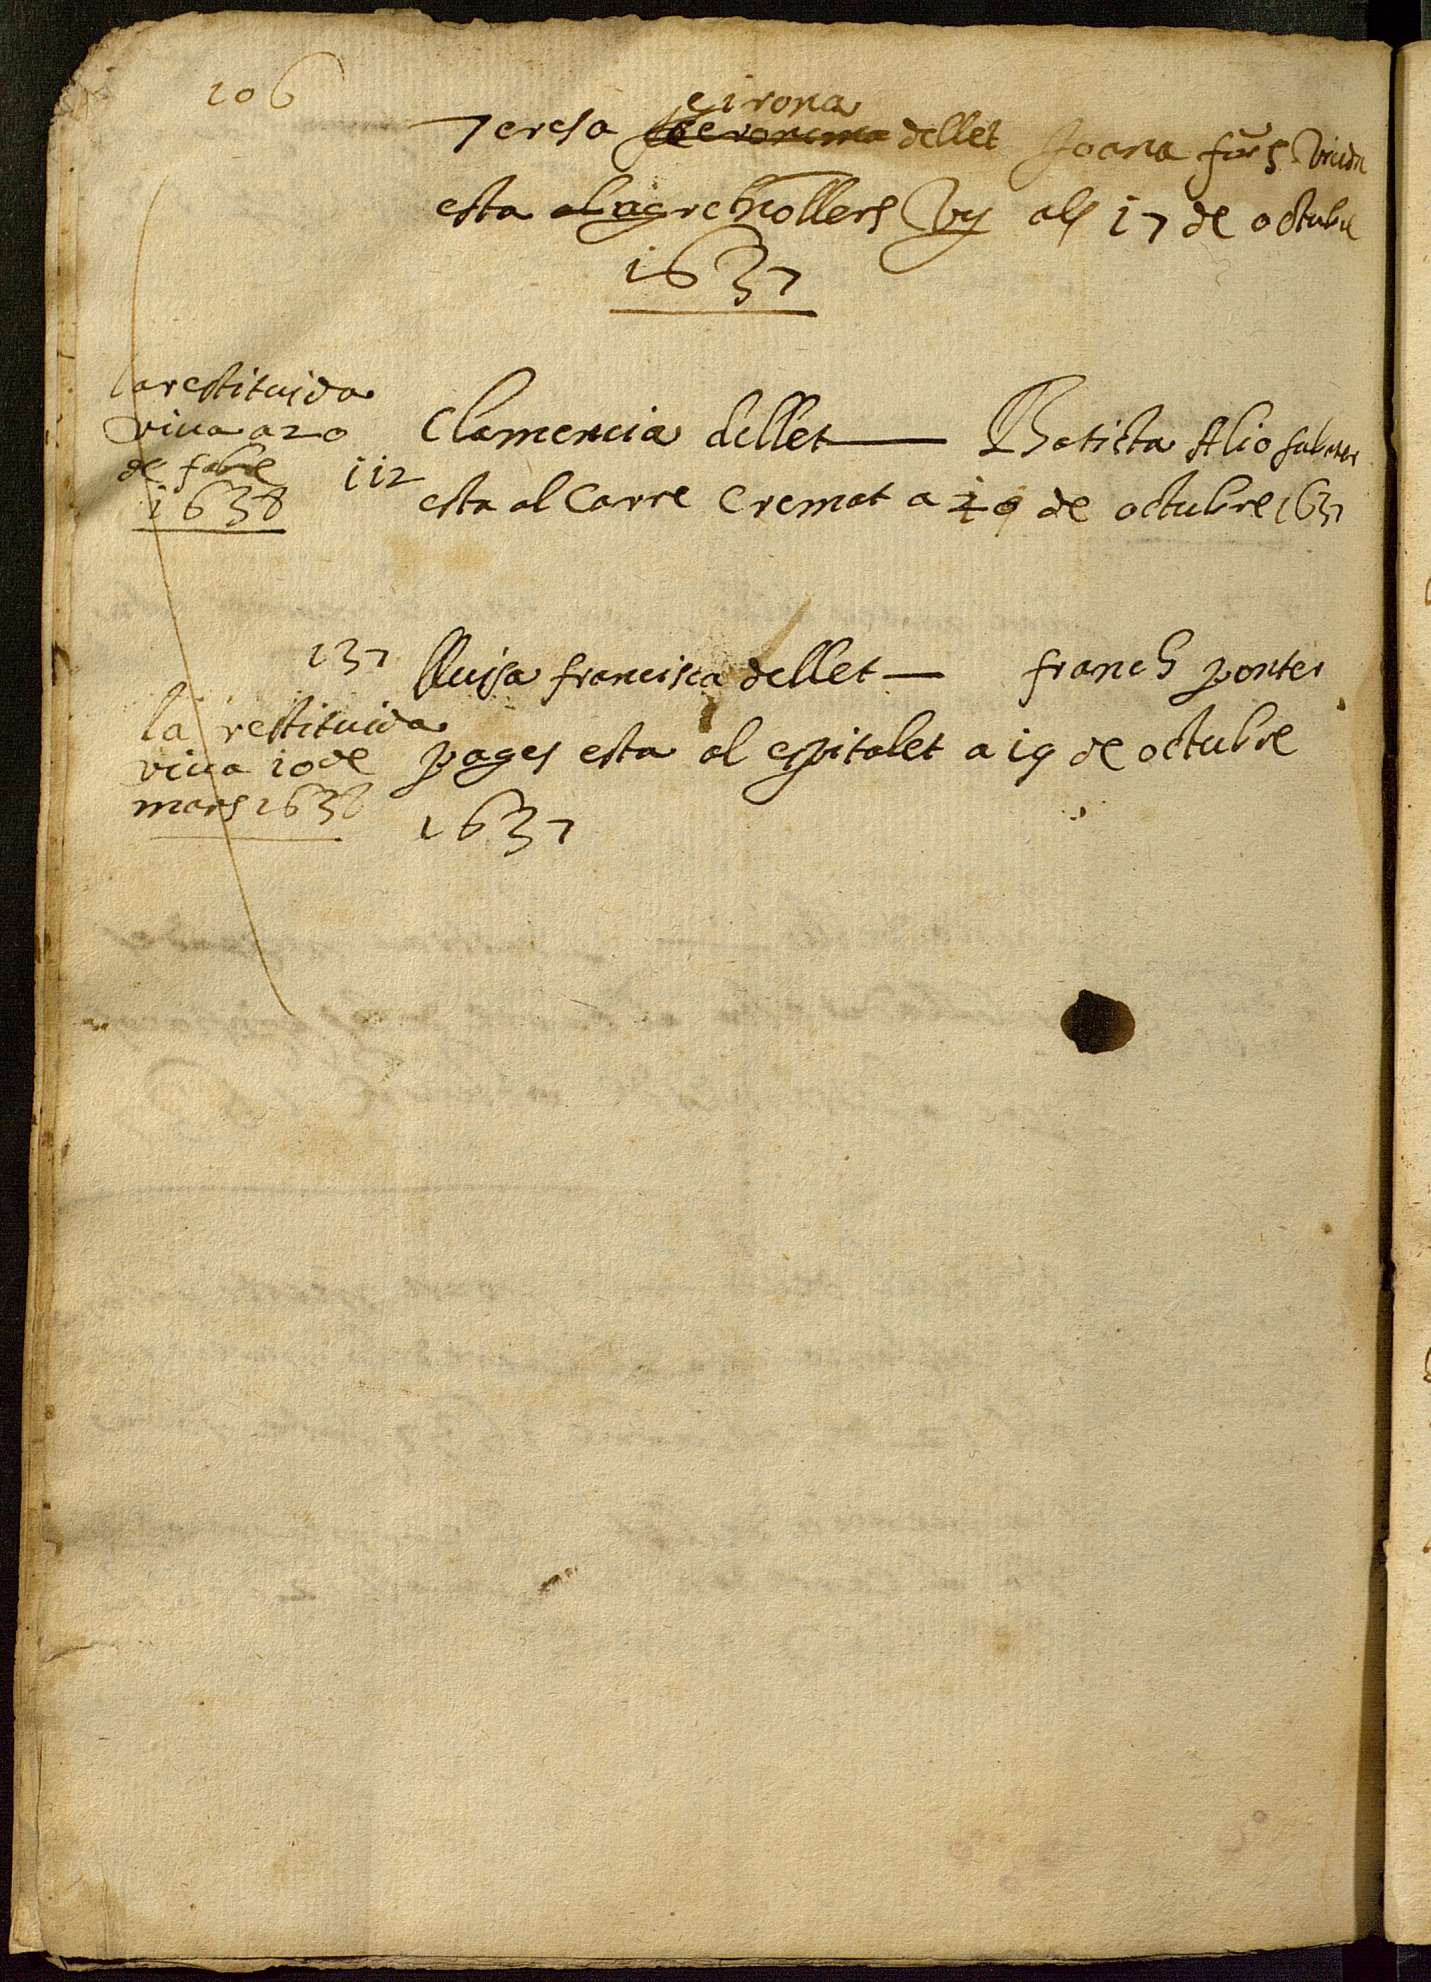 106
girona
Teresa Geronima dellet Joana fors viuda
esta al agrethollers vy als 17 de octubre
1637
la restituida
viva a 20
de fabre
1638
112
Clamencia dellet — Batista Alio sabater
esta al Carre Cremat a 19 de octubre 1637
137
lluisa francisca dellet — franch ponter
la restituida
viva 10 de
mars 1638
pages esta al espitalet a 19 de octubre
1637